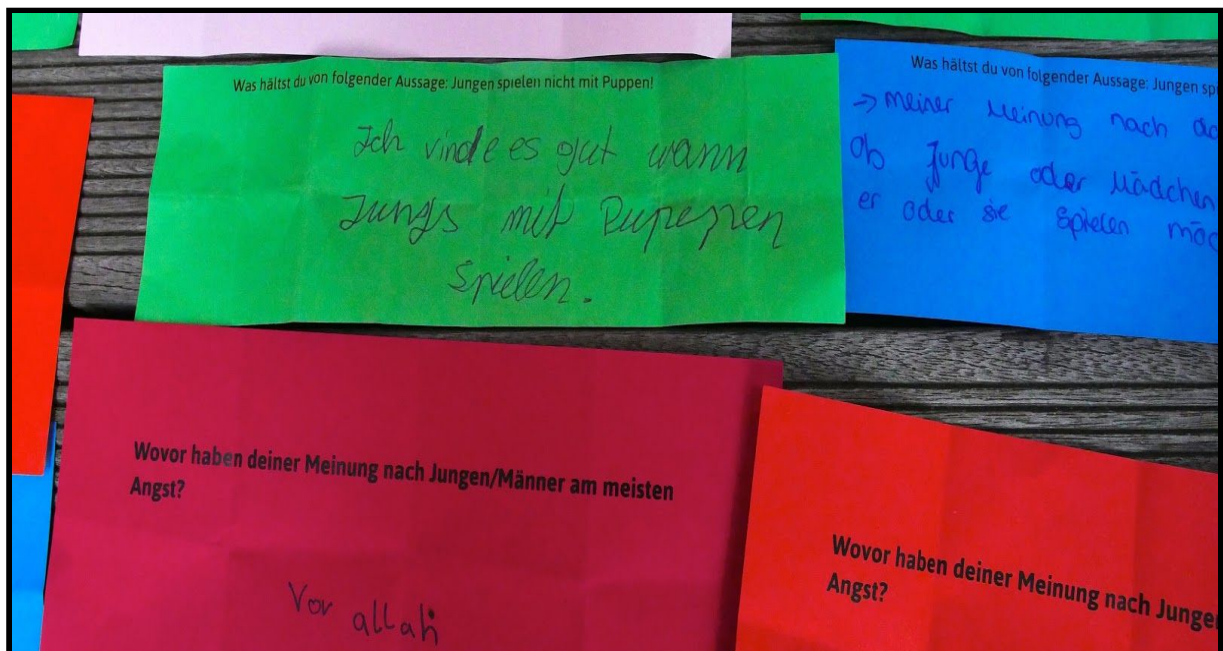 Was hältst du von folgender Aussage: Jungen spielen nicht mit Puppen!
Ich vinde es gut wann
Jungs mit Pupepnen
spielen.
Was hältst du von folgender Aussage: Jungen spi
-> meiner Meinung nach da
ob Junge oder Mädchen
er oder sie spielen möc
Wovor haben deiner Meinung nach Jungen/Männer am meisten
Angst?
Vor allah
Wovor haben deiner Meinung nach Junge
Angst?